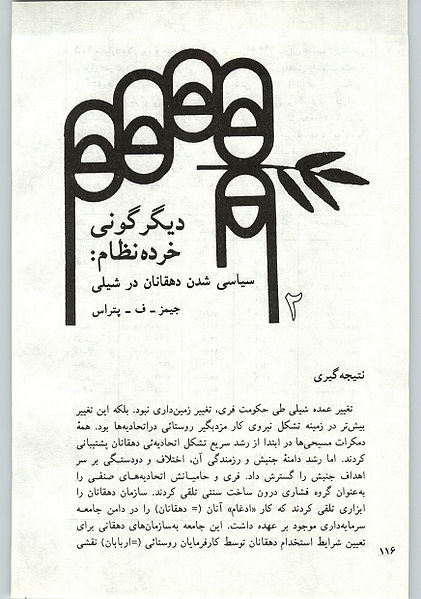 دیگرگونی
خرده‌نظام:
سیاسی شدن دهقانان در شیلی
جیمز ـ ف ـ پتراس
۲
نتیجه‌گیری
تغییر عمده شیلی طی حکومت فری، تغییر زمین‌داری نبود. بلکه این تغییر
بیش‌تر در زمینه تشکل نیروی کار مزدبگیر روستائی دراتحادیه‌ها بود. همهٔ
دمکرات مسیحی‌ها در ابتدا از رشد سریع تشکل اتحادیه‌ئی دهقانان پشتیبانی
کردند. اما رشد دامنهٔ جنبش و رزمندگی آن، اختلاف و دودستگی بر سر
اهداف جنبش را گسترش داد. فری و حامیانش اتحادیه‌های صنفی را
به‌عنوان گروه فشاری درون ساخت سنتی تلقی کردند. سازمان دهقانان را
ابزاری تلقی کردند که کار «ادغام» آنان (= دهقانان) را در دامن جامعه
سرمایه‌داری موجود بر عهده داشت. این جامعه به‌سازمان‌های دهقانی برای
تعیین شرایط استخدام دهقانان توسط کارفرمایان روستائی (=اربابان) نقشی
۱۱۶